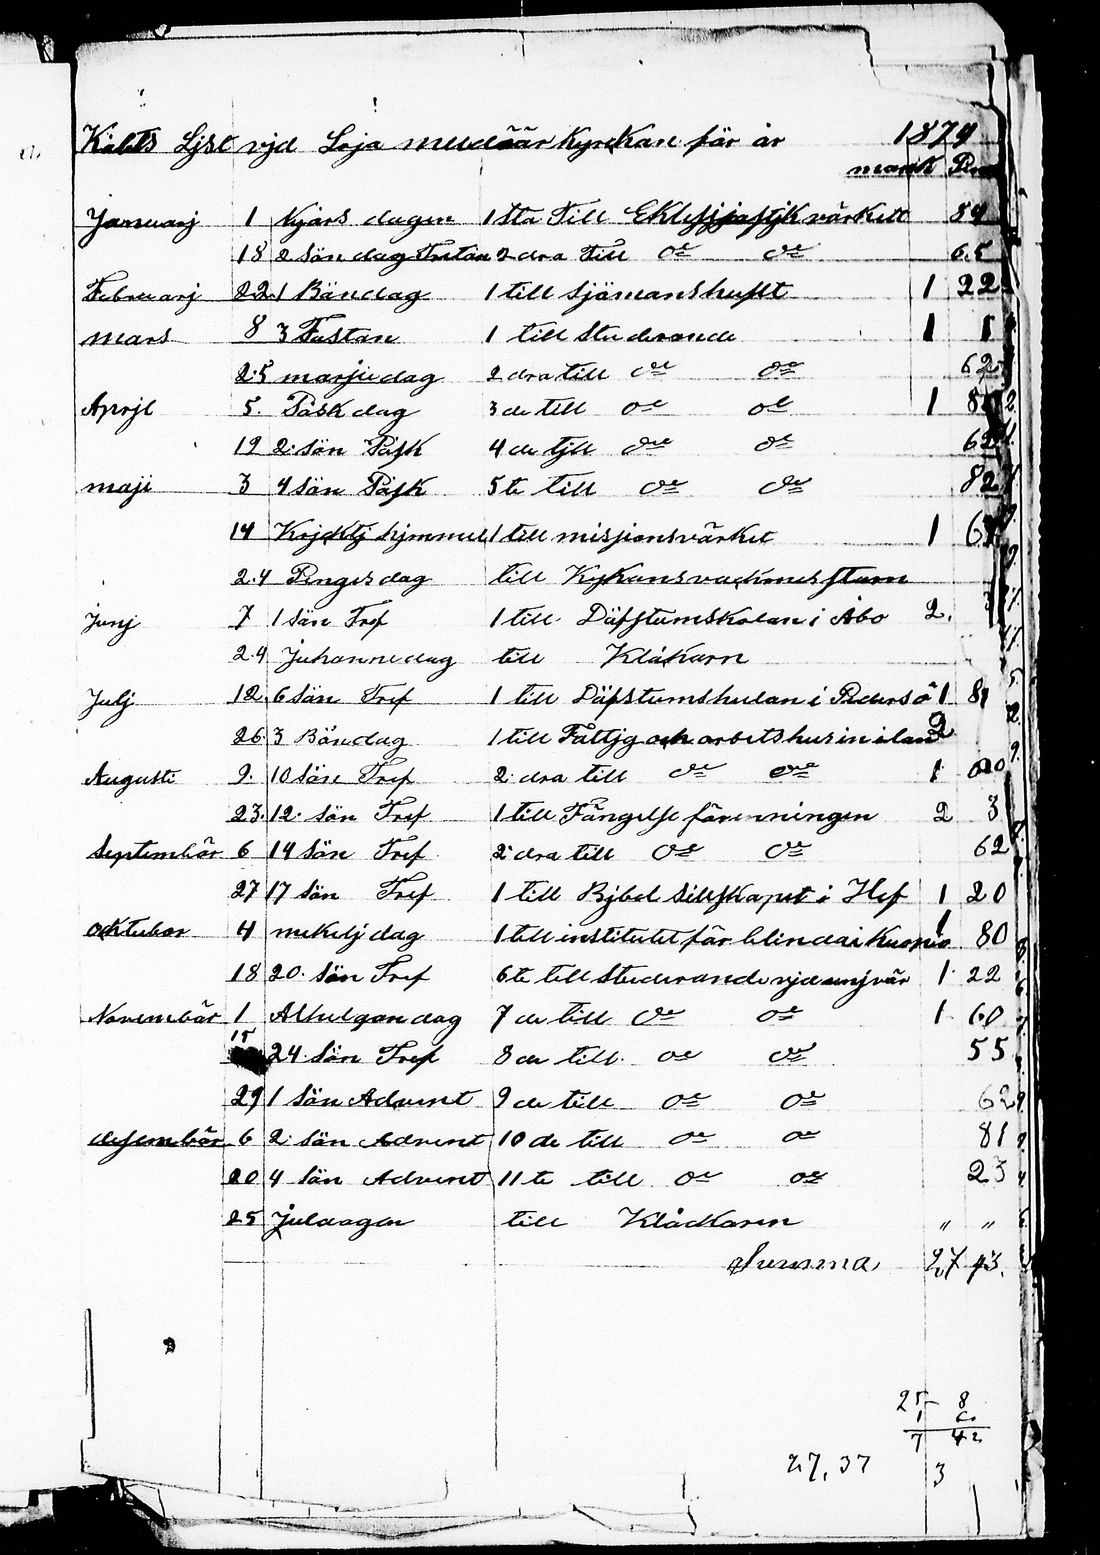 Kålets Ljst vjd Loja mudäär Kyrckan för år 1874
mark Penni
Januarj 1 Nyårs dagen 1 sta Till Eklesjjastjk värkett 84
18 2 Sön dag Tretan 2 dra Till Do Do 65
Februarj 22 1 Böndag 1 till Sjömanshuset 1 22
mars 8 3 Fastan 1 till Studerande 1 1
25 marjedag 2 dra till Do Do 62
Aprjl 5. Påsk dag 3 de till Do Do 1
19 2 Sön Påsk 4 de tjll Do Do 62
maji 3 4 Sön Påsk 5 te till Do Do 82
14 Krjsttj hjmmel 1 till misjionsvärket 1
24 Pingesdag till
Junj 7 1 Sön Tref 1 till Döfstumskolan i Åbo 2.
24 Johannedag till Klåkarn
Julj 12 6 Sön Tref 1 till Döfstumshulan i Pedersö 1 81
26 3 Böndag 1 till Fattjg och arbetshusin i lan 2
Augusti 9. 10 Sön Tref 2 dra till Do Do 1
23. 12. Sön Tref 1 till Fängelse förenningen 2 3
Septembär 6 14 Sön Tref 2 dra till Do Do 62
27 17 Sön Tref 1 till Bjbel Sillskapet i Hef 1 20
oktubar 4 mekelj dag 1 till institutet för blinda i Kuopio 1 80
18 20. Sön Tref 6 te till Studerande vjd unjvär 1 22
Novembär 1 Alhelgon dag 7 de till Do Do 1 60
15 24 Sön Tref 8 de till Do Do 55
29 1 Sön Advent 9 de till Do Do 62
desembär 6 2 Sön Advent 10 de till Do Do 81
20 4 Sön Advent 11 te till Do Do 23
25 Juldagen till Klåckaren " "
Summa 27 43.
25 8
1 6
7 42
27,37 3